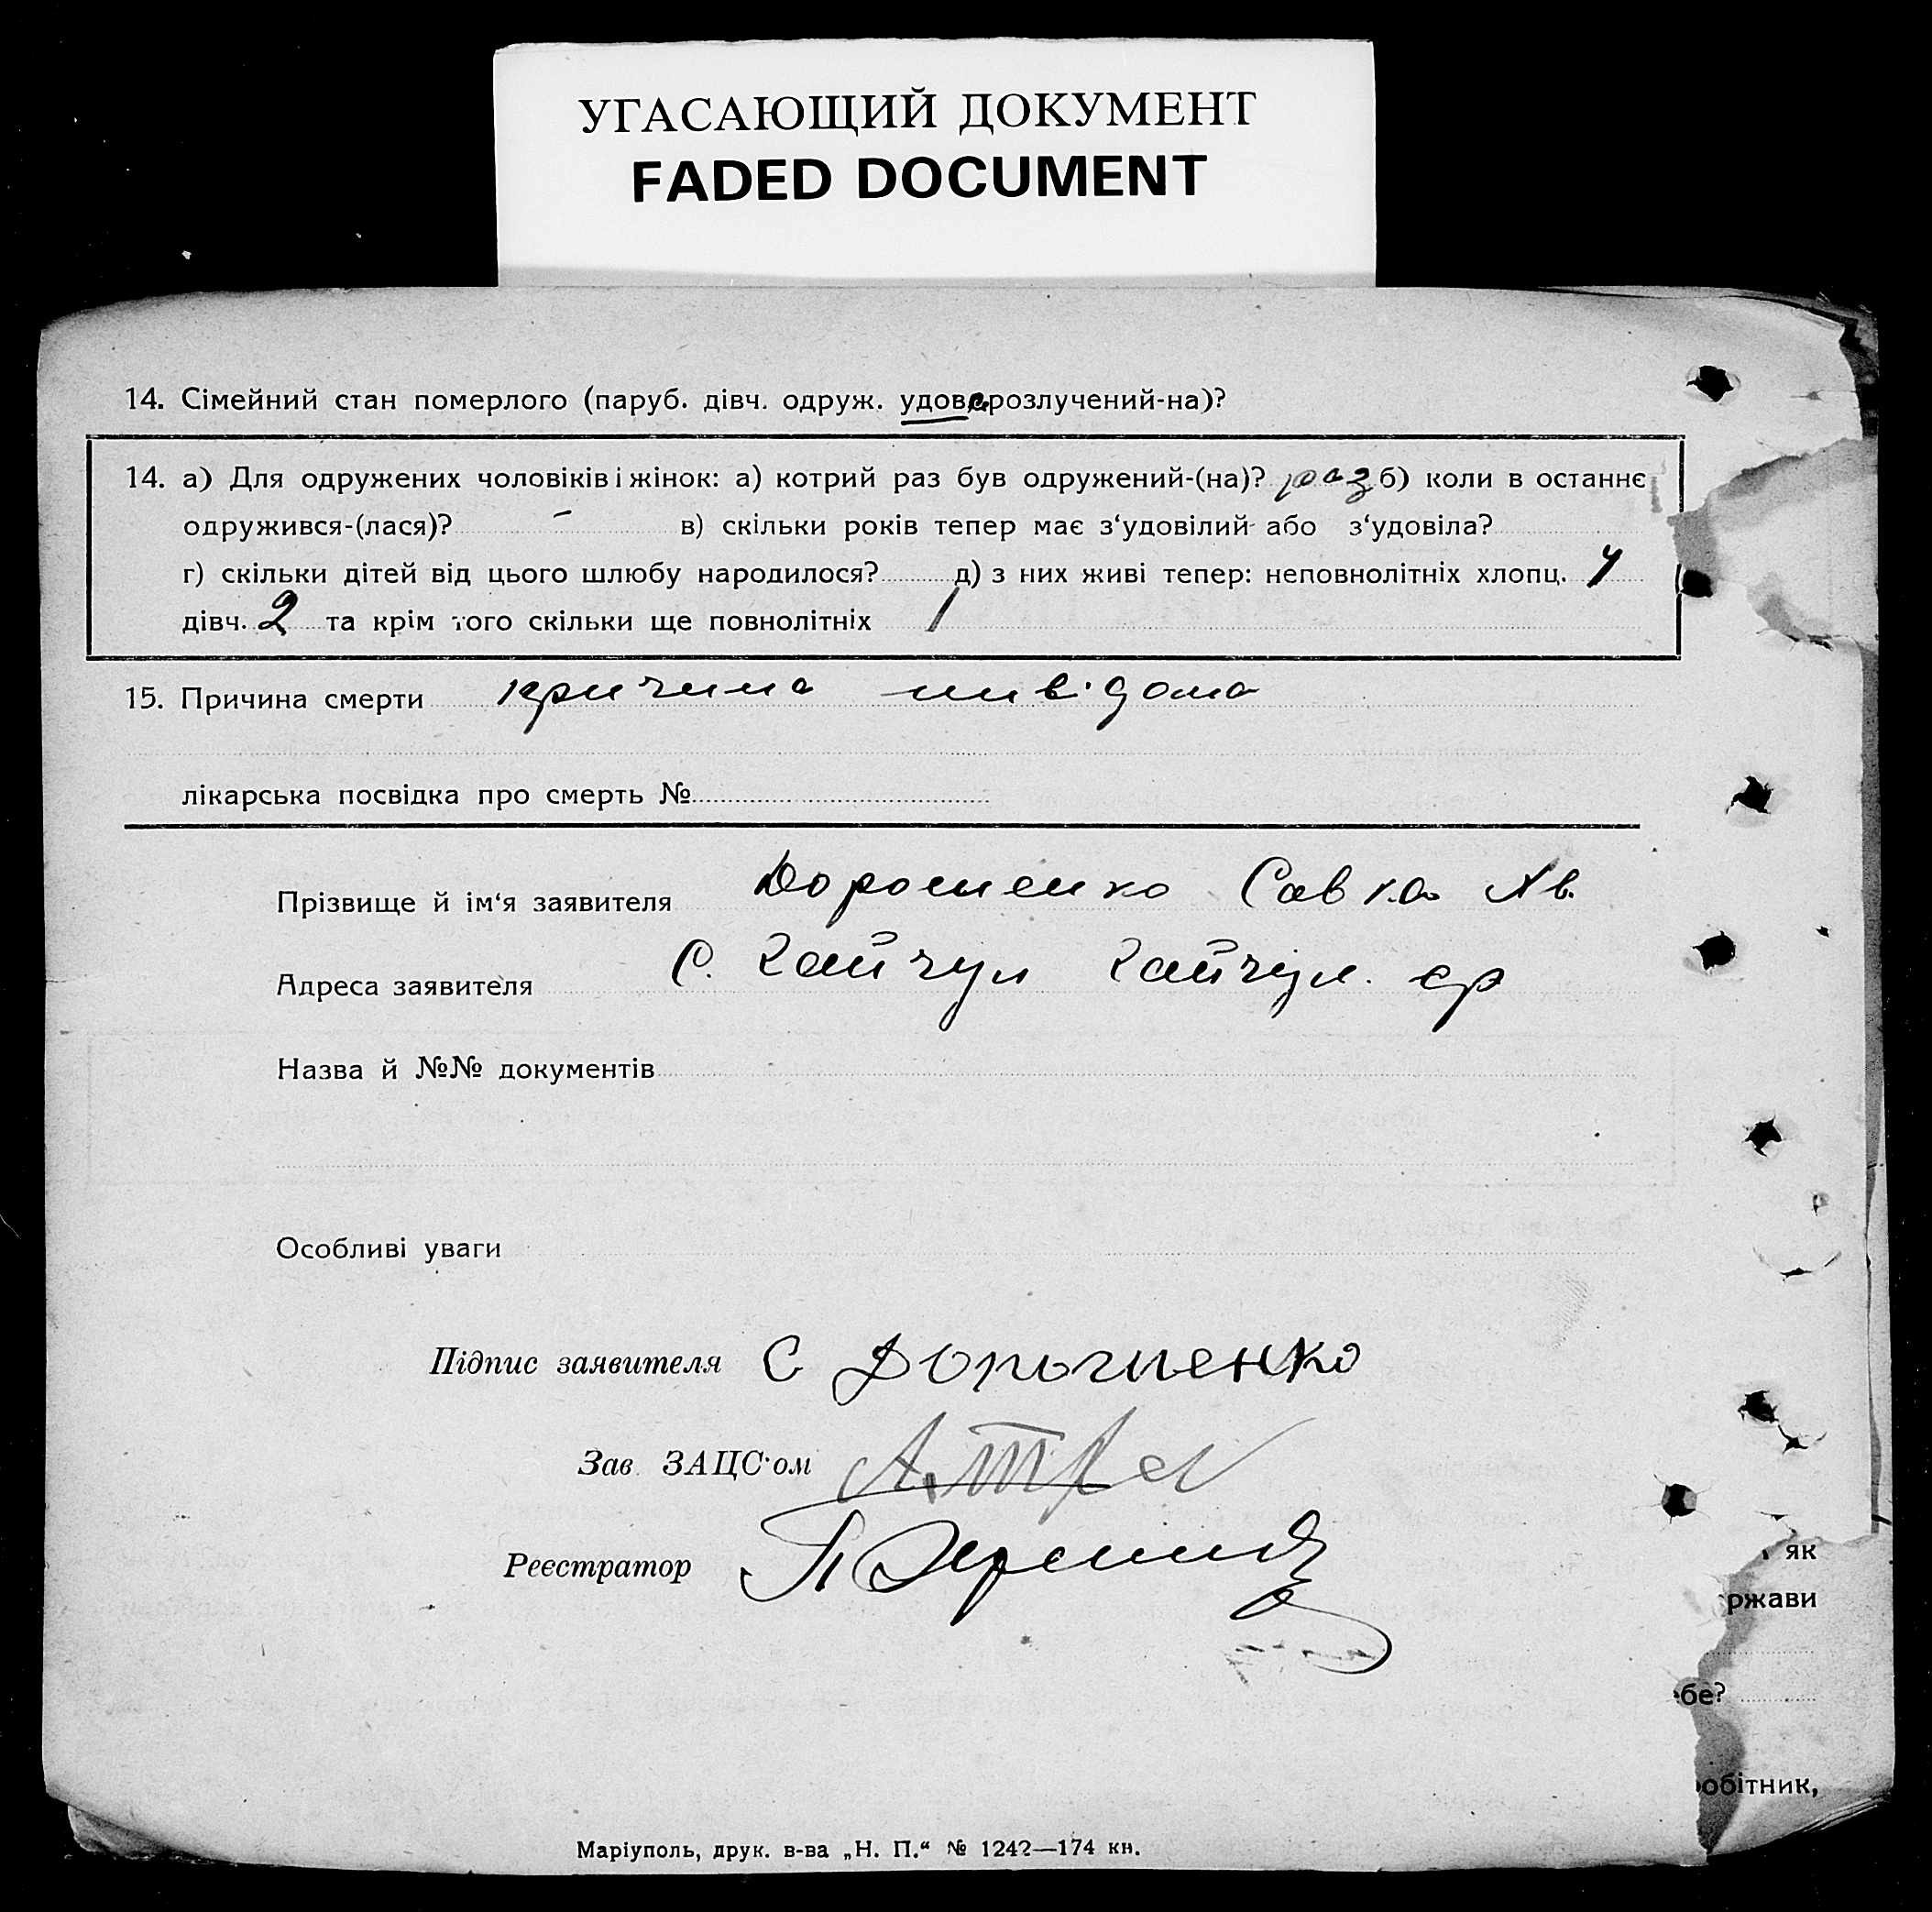 УГАСАЮЩИЙ ДОКУМЕНТ
FADED DOCUMENT
14. Сімейний стан померлого (паруб. дівч. одруж. удова розлучений-на)?
14. а) Для одружених чоловіків і жінок: а) котрий раз був одружений-(на)? раз б) коли в останнє
одружився-(лася)? - в) скільки років тепер має з‘удовілий або з‘удовіла?
г) скільки дітей від цього шлюбу народилося? д) з них живі тепер: неповнолітніх хлопц.
дівч. 2 та крім того скільки ще повнолітніх 1
15. Причина смерти причина нивідома
лікарська посвідка про смерть №
Прізвище й ім‘я заявителя Дорошенко Савка Ав.
Адреса заявителя С. Гайчул Гайчул. ср
Назва й №№ документів
Особливі уваги
Підпис заявителя С Дорошенко
Зав. ЗАЦС‘ом
Реєстратор
як
ржави
бе?
обітник,
Маріуполь, друк. в-ва „Н. П.“ № 1242—174 кн.